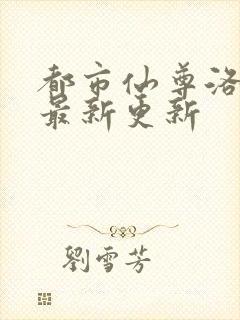 都市仙尊洛
最新更新
劉雪芳